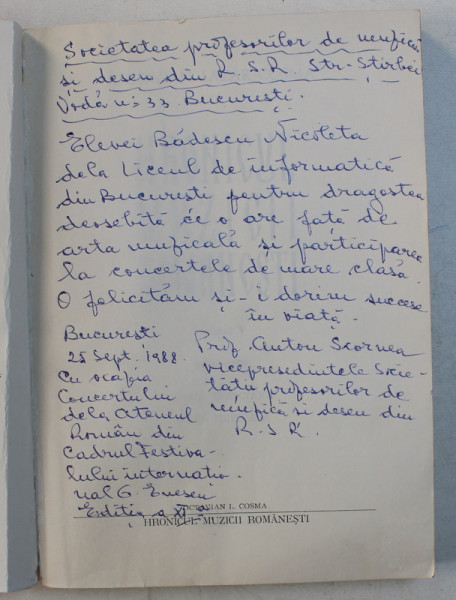 Societatea profesorilor de muzică
și desen din R.S.R. Str. Știrbei
Vodă nr. 33 București.
Elevei Bădescu Nicoleta
dela Liceul de informatică
din București pentru dragostea
deosebită ce o are față de
arta muzicală și participarea
la concertele de mare clasă.
O felicităm și-i dorim succese
în viață.
București
25 Sept. 1988.
Cu ocazia
Concertului
dela Ateneul
Român din
Cadrul Festiva-
lului internatio-
nal G. Enescu
Ediția a XI-a
Prof. Anton Scornea
vicepresedintele Socie-
tății profesorilor de
muzică și desen din
R.S.R.
OCTAVIAN L. COSMA
HRONICUL MUZICII ROMÂNEȘTI